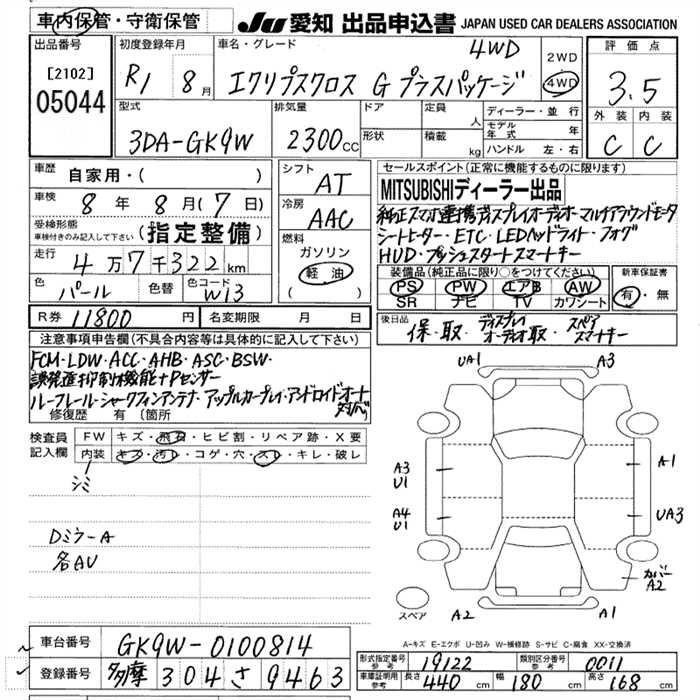 車内保管・守衛保管
JU 愛知 出品申込書 JAPAN USED CAR DEALERS ASSOCIATION
出品番号 [2102] 05044
初度登録年月 R1 8月
車名・グレード エクリプスクロス G プラスパッケージ 4WD
2WD
4WD
評価点 3.5
外装 C 内装 C
型式 3DA-GK9W
排気量 2300cc
ドア
形状
定員 人
積載 kg
ディーラー・並行
モデル年式 年
ハンドル 左・右
車歴 自家用・( )
車検 8年 8月(7日)
受検形態 (指定整備)
車検付きのみ記入して下さい
走行 4万7千322km
色 パール 色替 色コード W13
シフト AT
冷房 AAC
燃料 ガソリン
軽油
セールスポイント(正常に機能するものに限ります)
MITSUBISHIディーラー出品
純正スマホ連携ディスプレイオーディオ・マルチアラウンドモニタ
シートヒーター・ETC・LEDヘッドライト・フォグ
HUD・プッシュスタートスマートキー
装備品(純正品に限り○をつけてください)
PS PW エアB AW
SR ナビ TV カワシート
新車保証書
有・無
R券 11800円 名変期限 月 日
後日品 保・取・ディスプレイオーディオ取・スペアスマートキー
注意事項申告欄(不具合内容等は具体的に記入して下さい)
FCM・LDW・ACC・AHB・ASC・BSW・
誤発進抑制機能+Pセンサー
ルーフレール・シャークフィンアンテナ・アップルカープレイ・アンドロイドオート対応
修復歴 有 (箇所
検査員記入欄
FW キズ・飛石・ヒビ割・リペア跡・X要
内装 キズ・汚レ・コゲ・穴・スレ・キレ・破レ
シミ
DミラーA
各AU
UA1 A3
A3 U1
A1
A4 U1
UA3
カバー A2
スペア A2 A1
A-キズ E-エクボ U-凹み W-補修跡 S-サビ C-腐食 XX-交換済
車台番号 GK9W-0100814
登録番号 多摩 304 さ 9463
形式指定番号 参考 19122 類別区分番号 参考 0011
車庫証明用 参考 長さ 440cm 幅 180cm 高さ 168cm